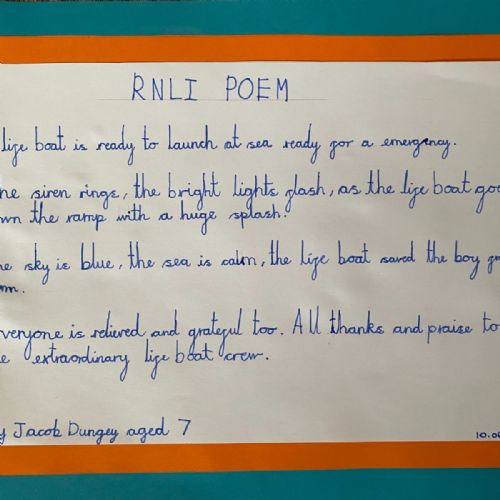 RNLI POEM
life boat is ready to launch at sea ready for a emergency.
he siren rings, the bright lights flash, as the life boat goe
wn the ramp with a huge splash.
he sky is blue, the sea is calm, the life boat saved the boy
veryone is relieved and grateful too. All thanks and praise to
e extraordinary life boat crew.
y Jacob Dungey aged 7
10.0